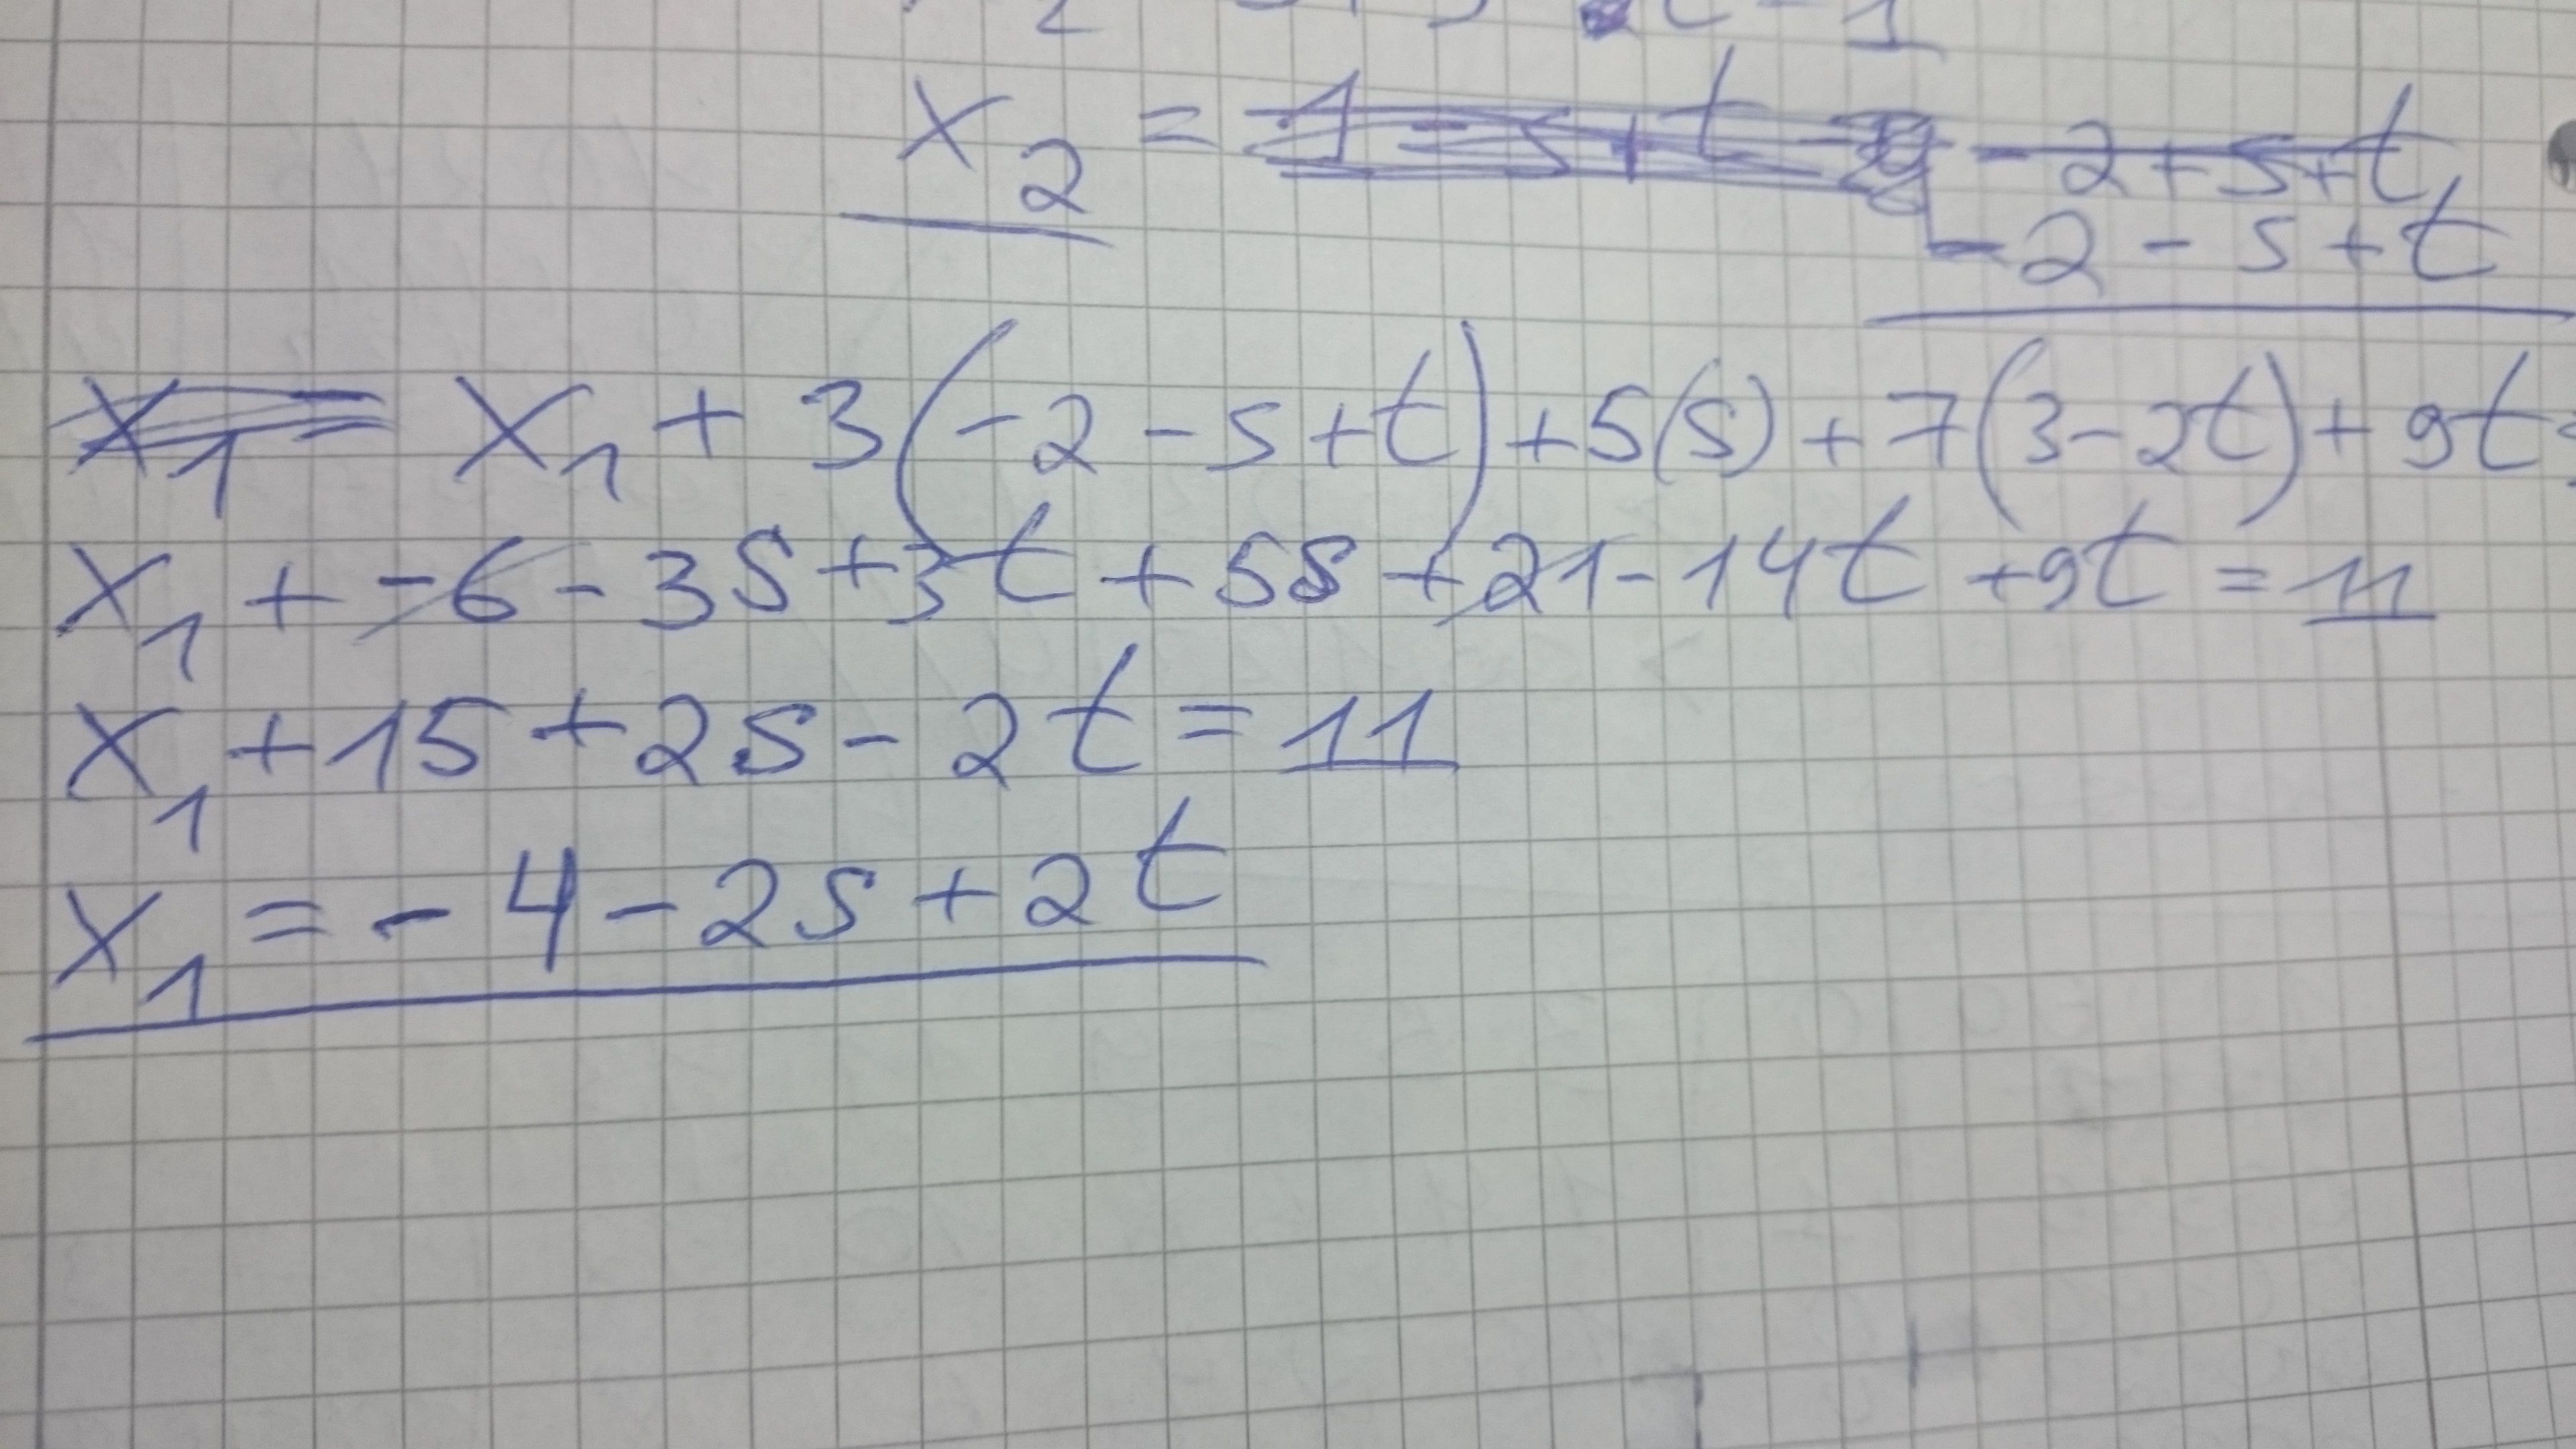 x₂ = 1 - s + t - 2 + s + t
- 2 - s + t
x₁ = x₁ + 3(-2 - s + t) + 5(s) + 7(3 - 2t) + 9t =
x₁ + -6 - 3s + 3t + 5s + 21 - 14t + 9t = 11
x₁ + 15 + 2s - 2t = 11
x₁ = - 4 - 2s + 2t